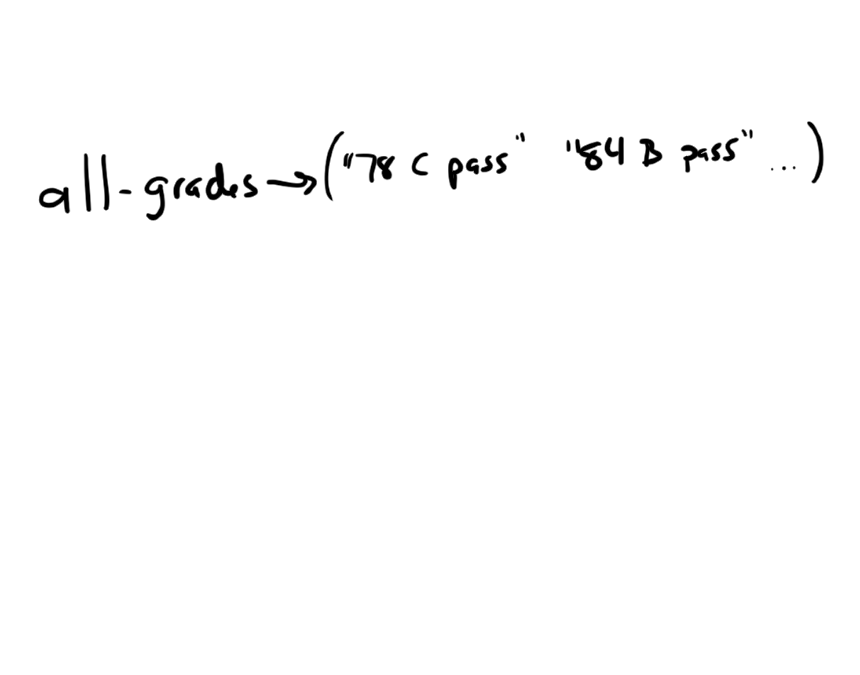 all-grades → ("78 C pass" "84 B pass" ...)